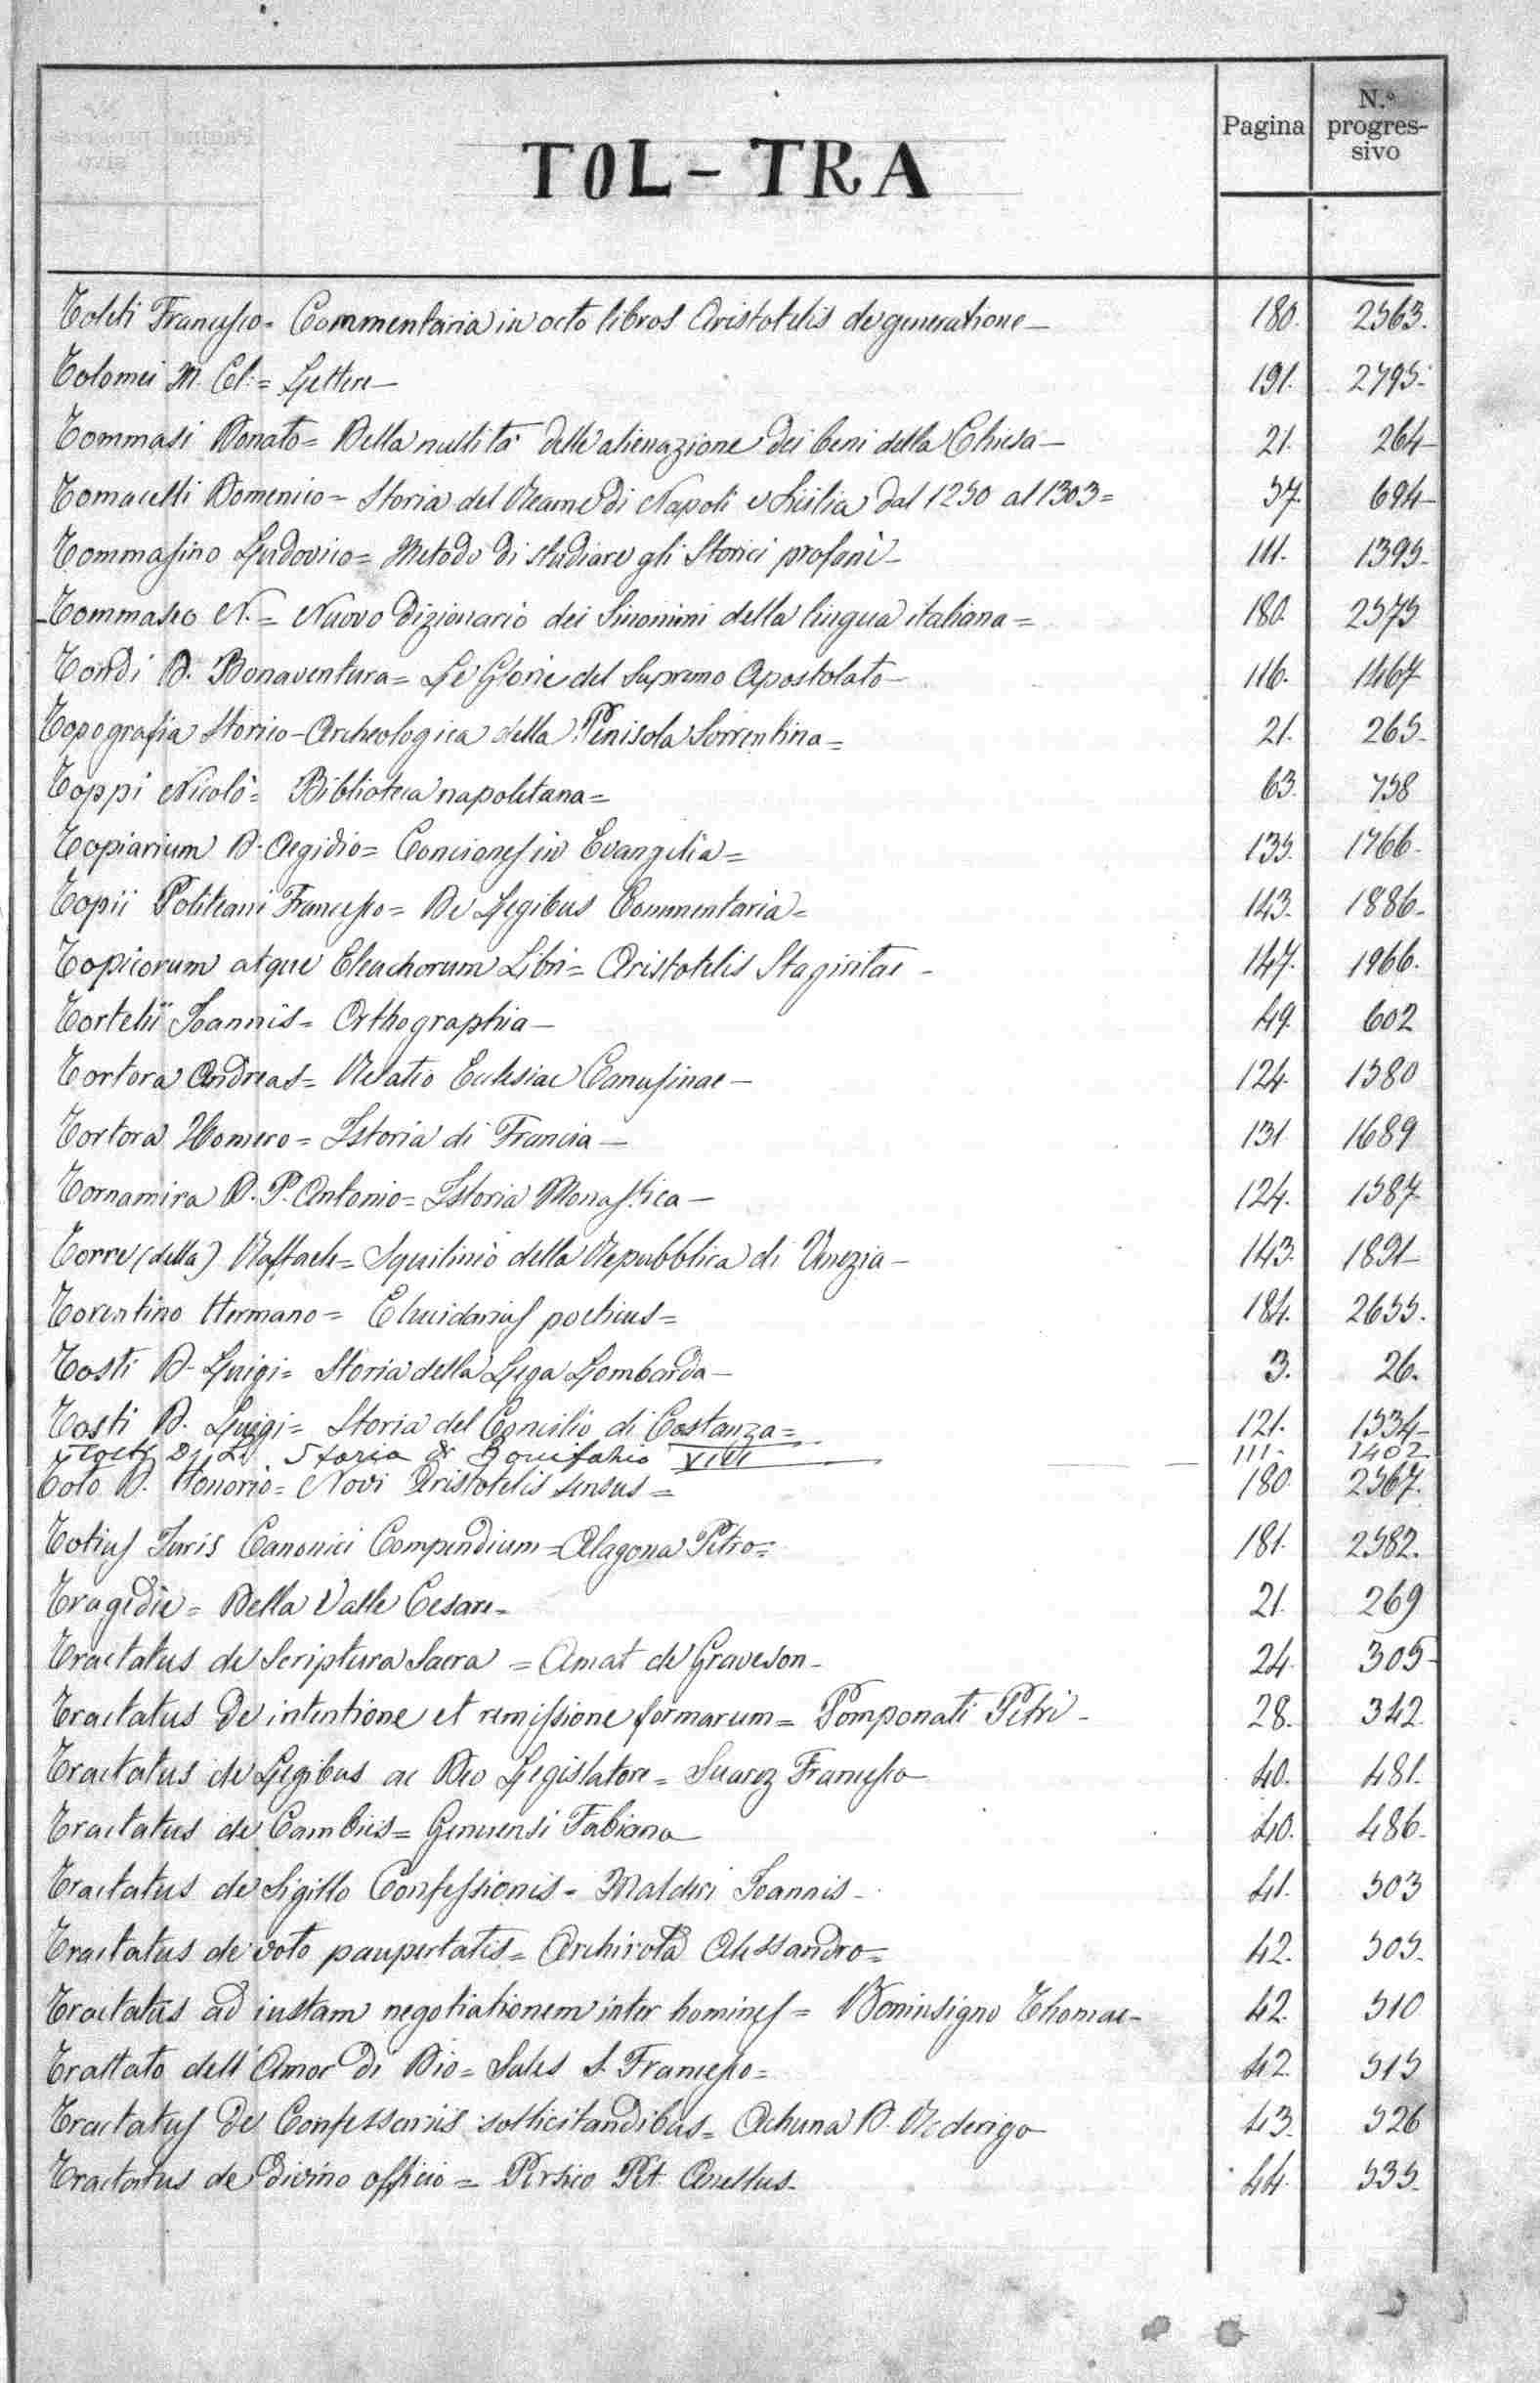 Pagina
N.º progres-
sivo
TOL - TRA
Toleti Francesco = Commentaria in octo libros Aristotelis de generatione — 180. 2563.
Tolomei M. Cl: = Lettere — 191. 2795.
Tommasi Donato = Della nullità delle alienazione dei beni della Chiesa — 21. 264
Tomacelli Domenico = Storia del Reame di Napoli e Sicilia dal 1250 al 1303 = 57. 694
Tommasino Ludovico = Metodo di studiare gli Storici profani — 111. 1395.
Tommaseo N. = Nuovo Dizionario dei Sinonimi della lingua italiana = 180. 2575
Tondi D. Bonaventura = Le Glorie del Supremo Apostolato — 116. 1467
Topografia Storico-Archeologica della Penisola Sorrentina = 21. 265.
Toppi Nicolò = Biblioteca napoletana = 63. 758
Topiarium D. Aegidio = Conciones in Evangelia = 135. 1766.
Topii Politeani Francesco = De Legibus Commentaria = 143. 1886.
Topicorum atque Elenchorum Libri = Aristotelis Stagiritae — 147. 1966.
Tortelii Joannis = Orthographia — 49. 602
Tortora Andreas = Relatio Eclesiae Canusinae — 124. 1580
Tortora Homero = Istoria di Francia — 131 1689
Tornamira D. P. Antonio = Istoria Monastica — 124. 1587
Torre (della) Raffaele = Squitinio della Repubblica di Venezia — 143. 1891
Torentino Hermano = Elucidarius poeticus = 184. 2655.
Tosti D. Luigi = Storia della Lega Lombarda — 3. 26.
Tosti D. Luigi = Storia del Concilio di Costanza = 121. 1534
Tosti D. L. Storia di Bonifazio VIII 111 1402
Toto D. Honorio = Novi Aristotelis sensus = 180. 2567.
Totius Juris Canonici Compendium = Alagona Petro = 181. 2582.
Tragedie = Della Valle Cesare = 21. 269
Tractatus de Scriptura Sacra = Amat de Graveson — 24. 305
Tractatus de intentione et remissione formarum = Pomponati Petri — 28. 342
Tractatus de Legibus ac Deo Legislatore = Suarez Francesco 40. 481.
Tractatus de Cambiis = Genuensi Fabiano 40. 486.
Tractatus de Sigillo Confessionis = Malderi Joannis — 41. 503
Tractatus de voto paupertatis = Archirota Alessandro = 42. 505.
Tractatus ad iustam negotiationem inter homines = Boninsigno Thomae — 42. 510
Trattato dell'Amor di Dio = Sales S. Francesco = 42. 515
Tractatus de Confessariis sollicitandibus = Achuna D. Rederigo 43. 526
Tractatus de Divino officio = Persico Pet. Anellus — 44. 535.